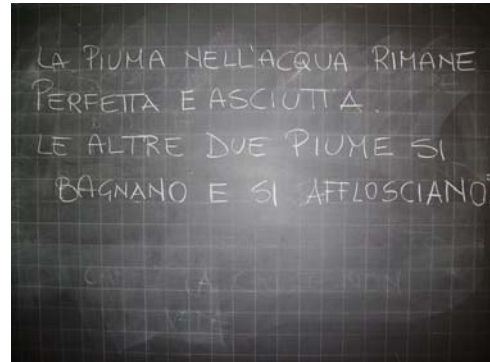 LA PIUMA NELL'ACQUA RIMANE
PERFETTA E ASCIUTTA.
LE ALTRE DUE PIUME SI
BAGNANO E SI AFFLOSCIANO
LA NON